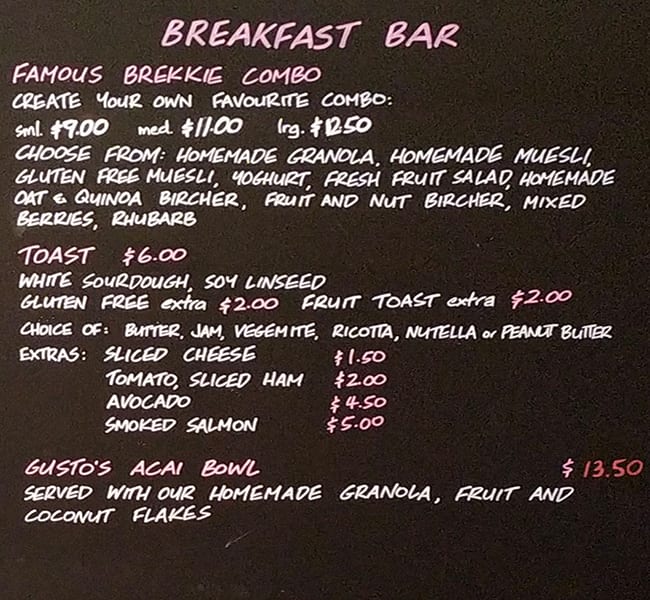 BREAKFAST BAR
FAMOUS BREKKIE COMBO
CREATE YOUR OWN FAVOURITE COMBO:
sml. $9.00 med. $11.00 lrg. $12.50
CHOOSE FROM: HOMEMADE GRANOLA, HOMEMADE MUESLI,
GLUTEN FREE MUESLI, YOGHURT, FRESH FRUIT SALAD, HOMEMADE
OAT & QUINOA BIRCHER, FRUIT AND NUT BIRCHER, MIXED
BERRIES, RHUBARB
TOAST $6.00
WHITE SOURDOUGH, SOY LINSEED
GLUTEN FREE extra $2.00 FRUIT TOAST extra $2.00
CHOICE OF: BUTTER, JAM, VEGEMITE, RICOTTA, NUTELLA or PEANUT BUTTER
EXTRAS: SLICED CHEESE $1.50
TOMATO, SLICED HAM $2.00
AVOCADO $4.50
SMOKED SALMON $5.00
GUSTO'S ACAI BOWL $13.50
SERVED WITH OUR HOMEMADE GRANOLA, FRUIT AND
COCONUT FLAKES